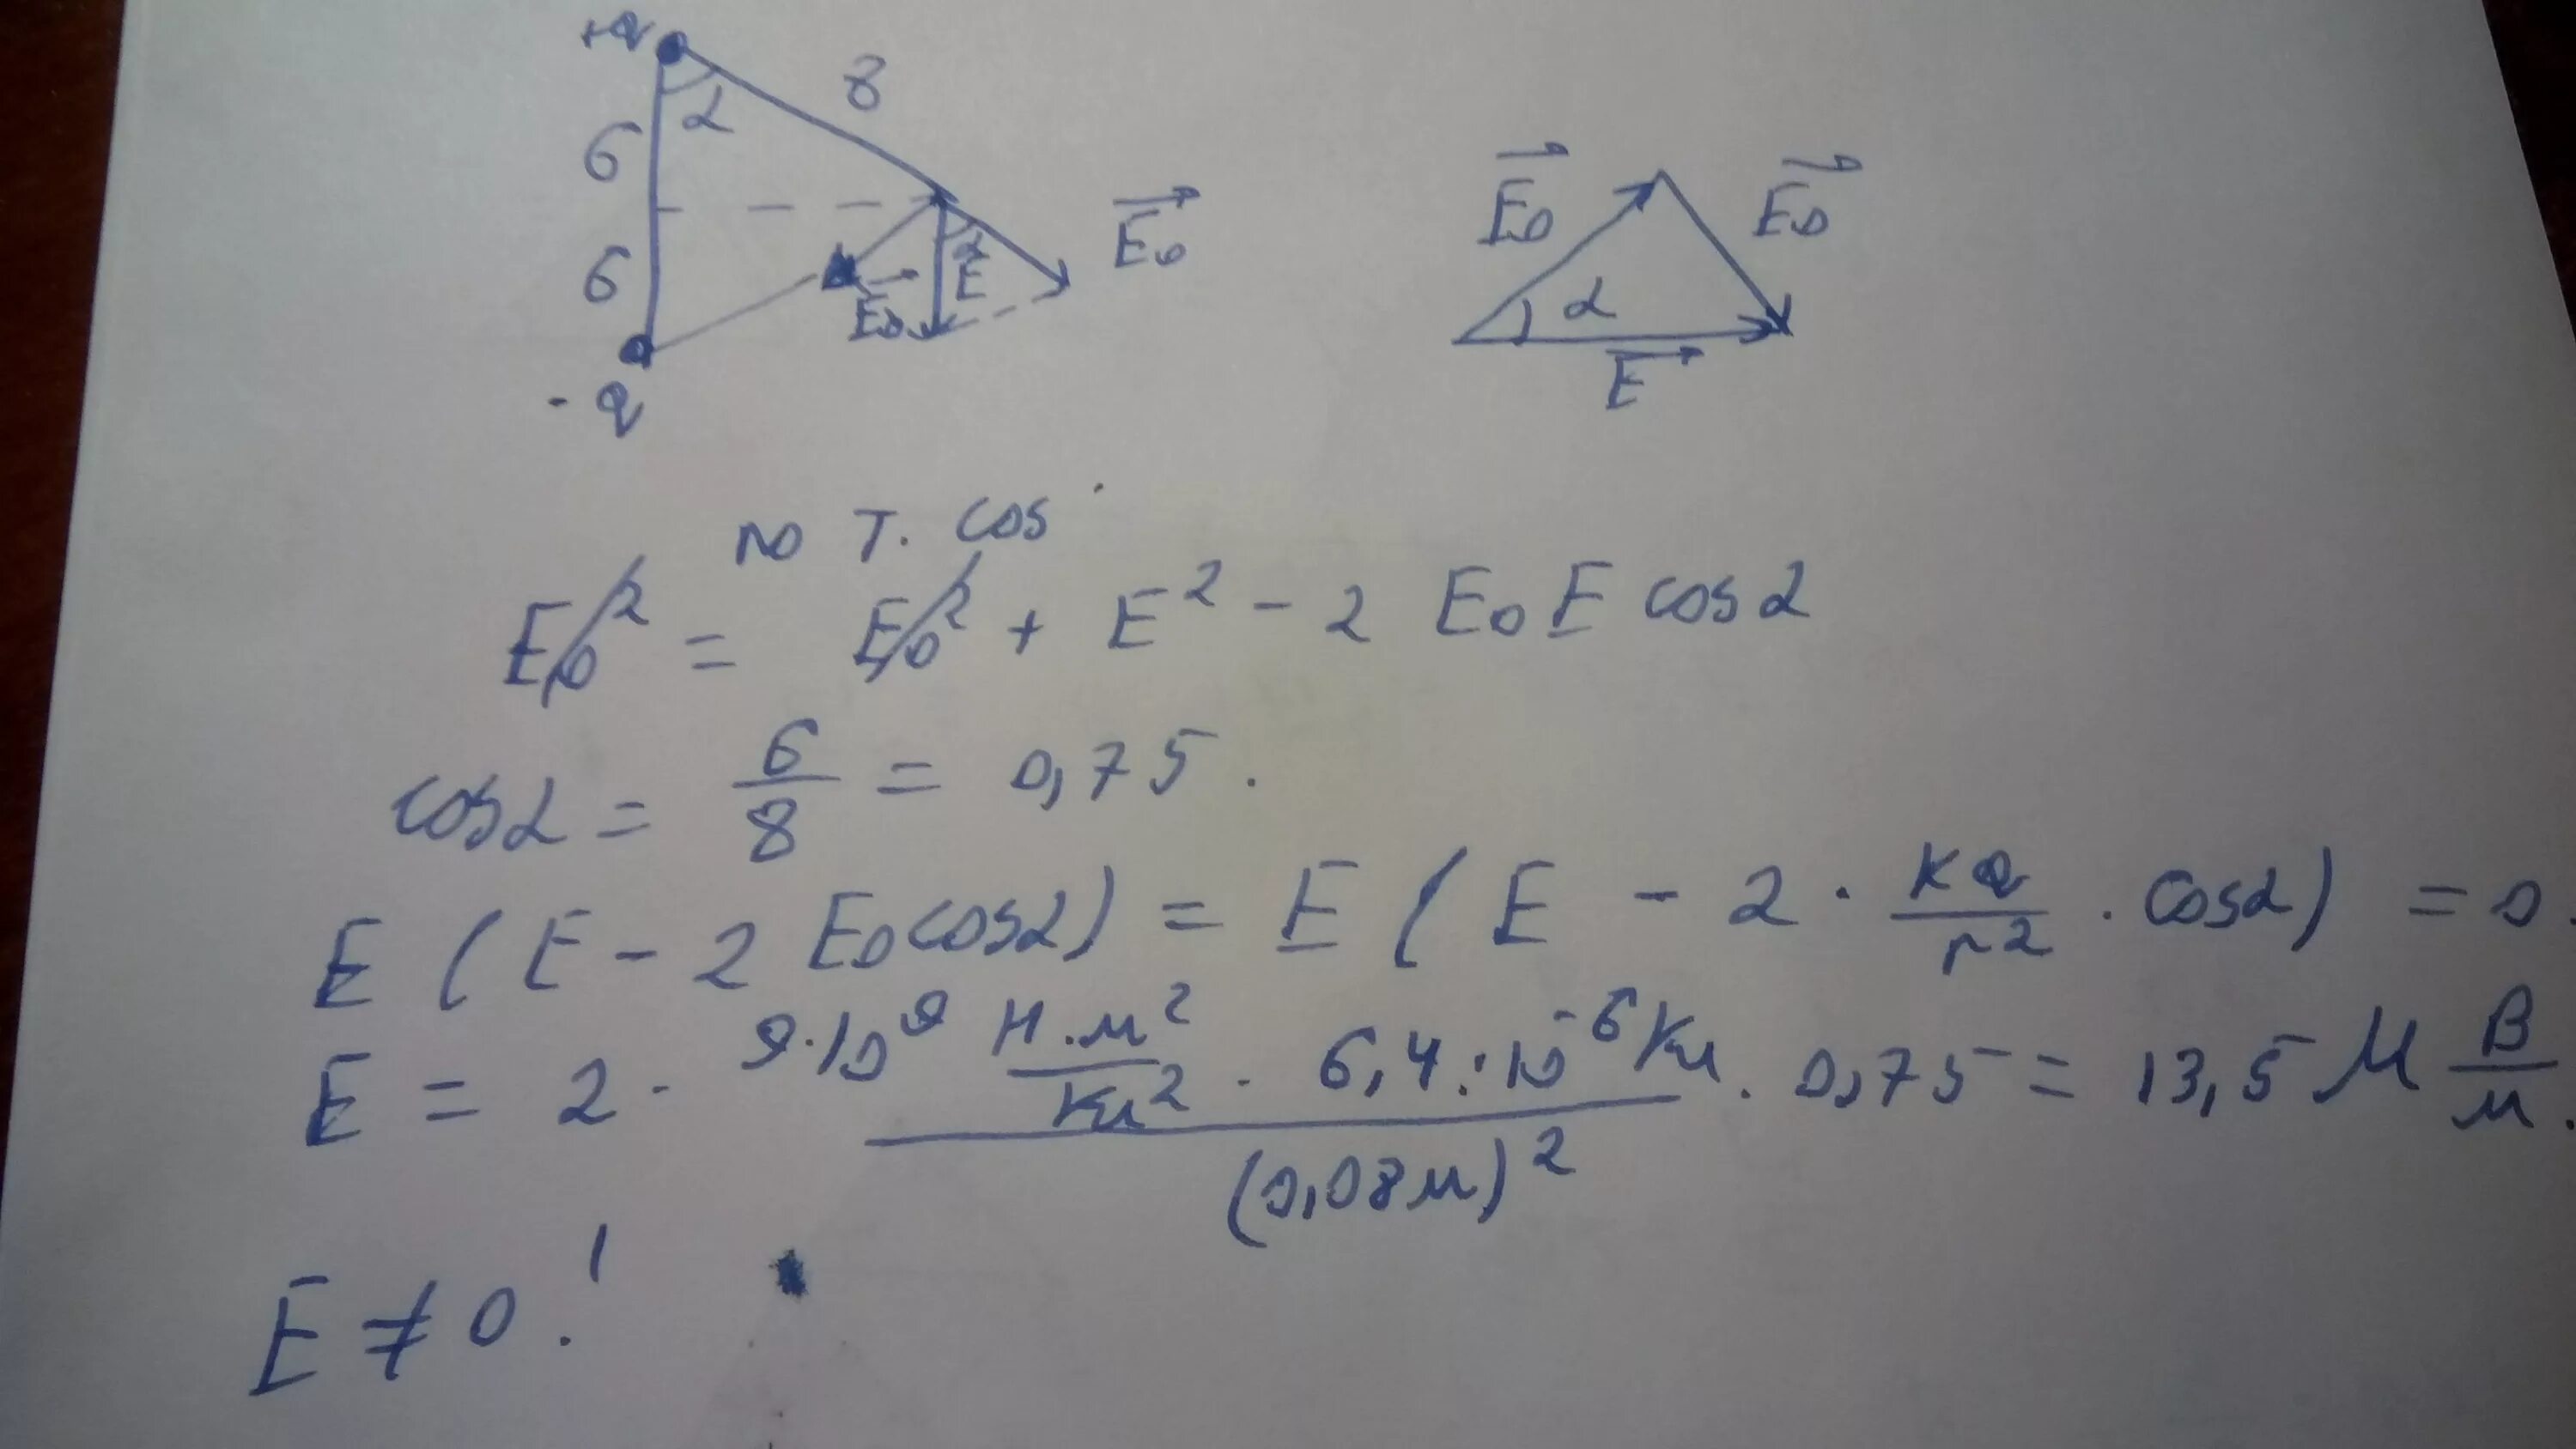 +q
8
α
6
6
E₀
α
E
E₀
-q
E₀
E₀
α
E
по т. cos
E₀² = E₀² + E² - 2 E₀ E cosα
cosα = 6/8 = 0,75.
E (E - 2 E₀ cosα) = E (E - 2 · kq/r² · cosα) = 0.
E = 2 · 9·10⁹ Н·м²/Кл² · 6,4·10⁻⁶ Кл / (0,08м)² · 0,75 = 13,5 М В/м.
E ≠ 0!